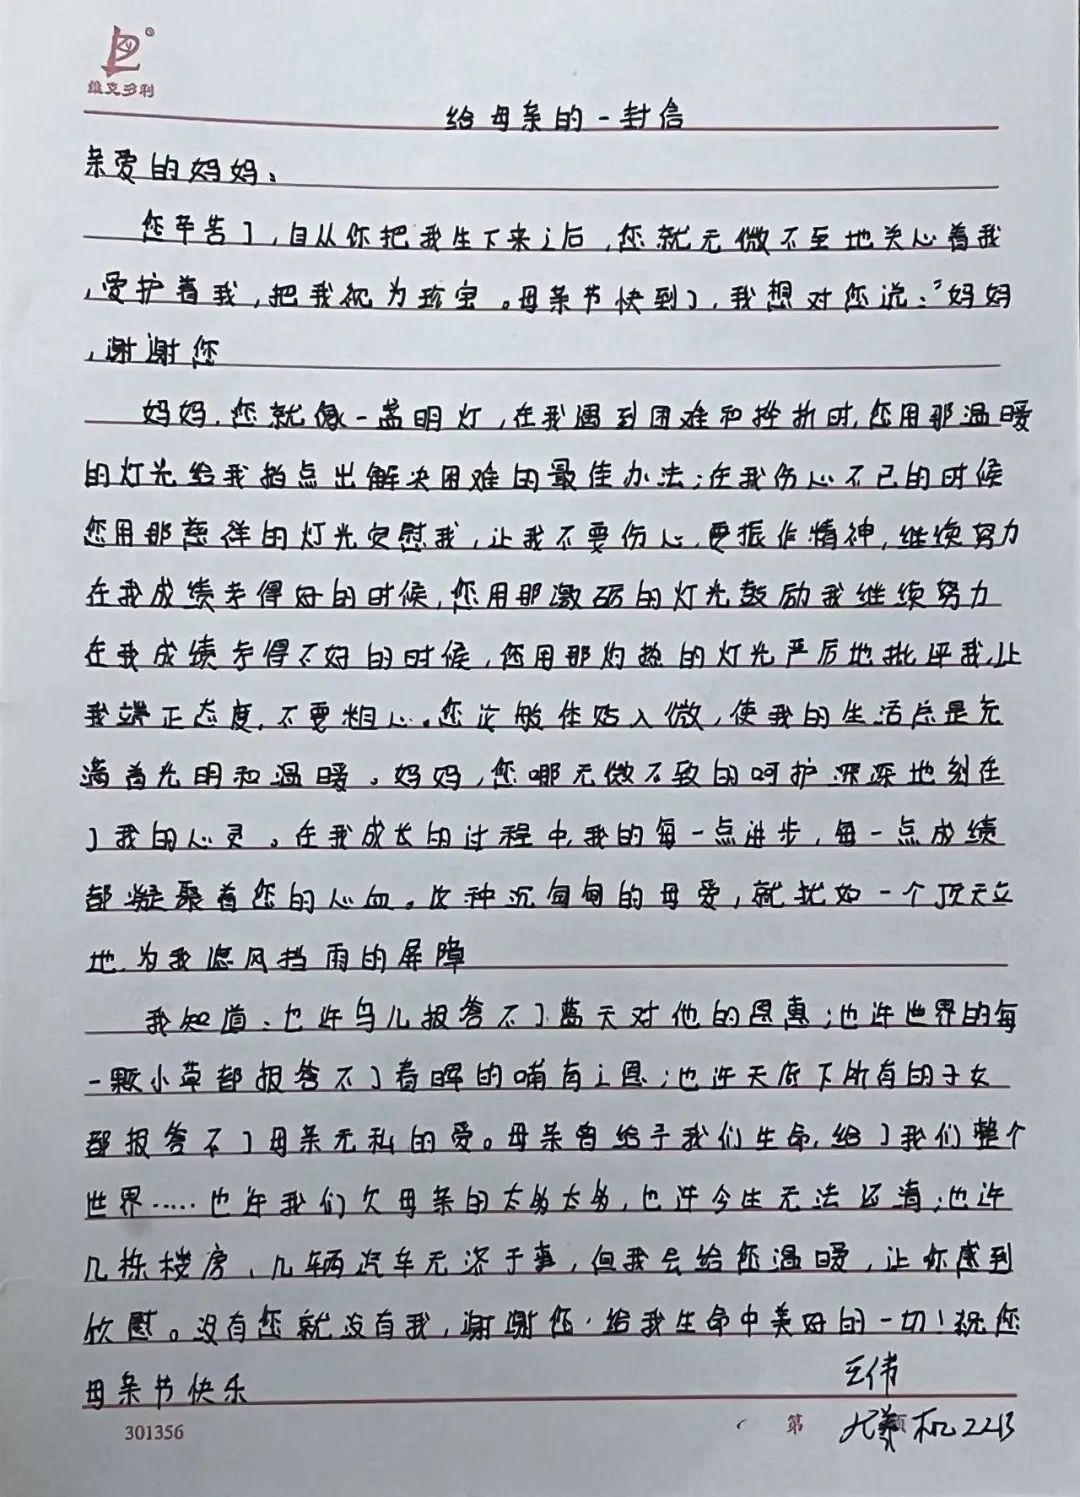 维克多利
给母亲的一封信
亲爱的妈妈：
您辛苦了，自从你把我生下来之后，您就无微不至地关心着我
，爱护着我，把我视为珍宝。母亲节快到了，我想对您说：“妈妈
，谢谢您
妈妈，您就像一盏明灯，在我遇到困难和挫折时，您用那温暖
的灯光给我指点出解决困难的最佳办法；在我伤心不已的时候
您用那慈祥的灯光安慰我，让我不要伤心，要振作精神，继续努力
在我成绩考得好的时候，您用那激励的灯光鼓励我继续努力
在我成绩考得不好的时候，您用那灼热的灯光严厉地批评我，让
我端正态度，不要粗心。您这般体贴入微，使我的生活总是充
满着光明和温暖。妈妈，您哪无微不致的呵护深深地刻在
了我的心灵。在我成长的过程中，我的每一点进步，每一点成绩
都凝聚着您的心血。这种沉甸甸的母爱，就犹如一个顶天立
地，为我遮风挡雨的屏障
我知道：也许鸟儿报答不了蓝天对他的恩惠；也许世界的每
一颗小草都报答不了春晖的哺育之恩；也许天底下所有的子女
都报答不了母亲无私的爱。母亲曾给予我们生命，给了我们整个
世界……也许我们欠母亲的太多太多，也许今生无法还清；也许
几栋楼房、几辆汽车无济于事，但我会给您温暖，让你感到
欣慰。没有您就没有我，谢谢您，给我生命中美好的一切！祝您
母亲节快乐
王伟
301356
第 页 机2213